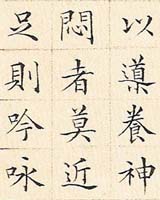 以導養神
悶者莫近
足則吟咏